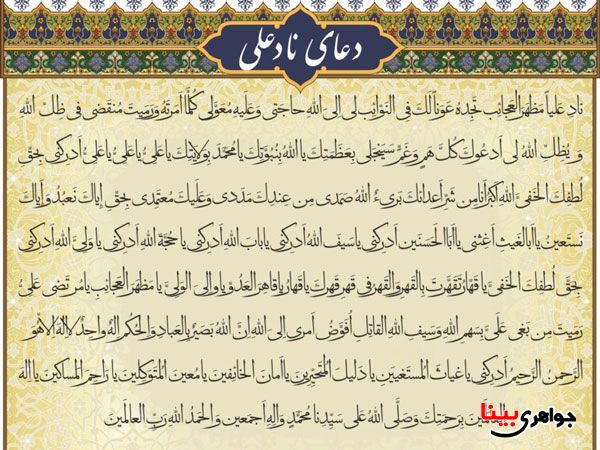 دعای ناد علی
نادِ عَلیاً مَظهَرَ العَجائِب تَجِدهُ عَوناً لَكَ فِی النَّوائِب لی اِلَی اللهِ حاجَتی وَعَلَیهِ مُعَوَّلی كُلَّما اَمَرتَهُ وَرَمَیتَ مُنقَضی فی ظِلِّ اللهِ
وَ یُظلِلِ اللهُ لی اَدعُوكَ كُلَّ هَمٍّ وَ غَمٍّ سَیَنجَلی بِعَظَمَتِكَ یا اللهُ بِنُبُوَّتِكَ یا مُحَمَّدُ بِوَلایَتِكَ یا عَلیُّ یا عَلیُّ یا عَلیُّ اَدرِكنی بِحَقِّ
لُطفِكَ الخَفیِّ اللهُ اَكبَرُ اَنَا مِن شَرِّ اَعدائِكَ بَریءٌ اللهُ صَمَدی مِن عِندِكَ مَدَدی وَ عَلَیكَ مُعتَمِدی بِحَقِّ اِیاكَ نَعبُدُ وَ اِیاكَ
نَستَعینُ یا اَبَا الغَیثِ اَغِثنی یا اَبَا الحَسَنَین اَدرِكنی یا سَیفَ اللهِ اَدرِكنی یا بابَ اللهِ اَدرِكنی یا حُجَّةَ اللهِ اَدرِكنی یا وَلیَّ اللهِ اَدرِكنی
بِحَقِّ لُطفِكَ الخَفیِّ یا قَهّارُ تَقَهَّرتَ بِالقَهرِ وَ القَهرُ فی قَهرِ قَهرِكَ یا قَهّارُ یا قاهِرَ العَدُوِّ یا والِیَ الوَلیِّ یا مَظهَرَ العَجائِبِ یا مُرتَضی عَلیُّ
رَمَیتَ مَن بَغی عَلَیَّ بِسَهمِ اللهِ وَ سَیفِ اللهِ القاتِلِ اُفَوِّضُ اَمری اِلَی اللهِ اِنَّ اللهَ بَصیرٌ بِالعِبادِ وَ اِلهُكُم اِلهٌ واحِدٌ لا اِلهَ اِلّا هُوَ
الرَّحمنُ الرَّحیمُ اَدرِكنی یا غیاثَ المُستَغیثینَ یا دَلیلَ المُتَحَیِّرینَ یا اَمانَ الخائِفینَ یا مُعینَ المُتَوَكِّلینَ یا راحِمَ المَساكینَ یا اِلهَ
العالَمینَ بِرَحمَتِكَ وَ صَلَّی اللهُ عَلی سَیِّدِنا مُحَمَّدٍ وَ آلِهِ اَجمَعینَ وَ الحَمدُ للهِ رَبِّ العالَمینَ
جواهری بینا